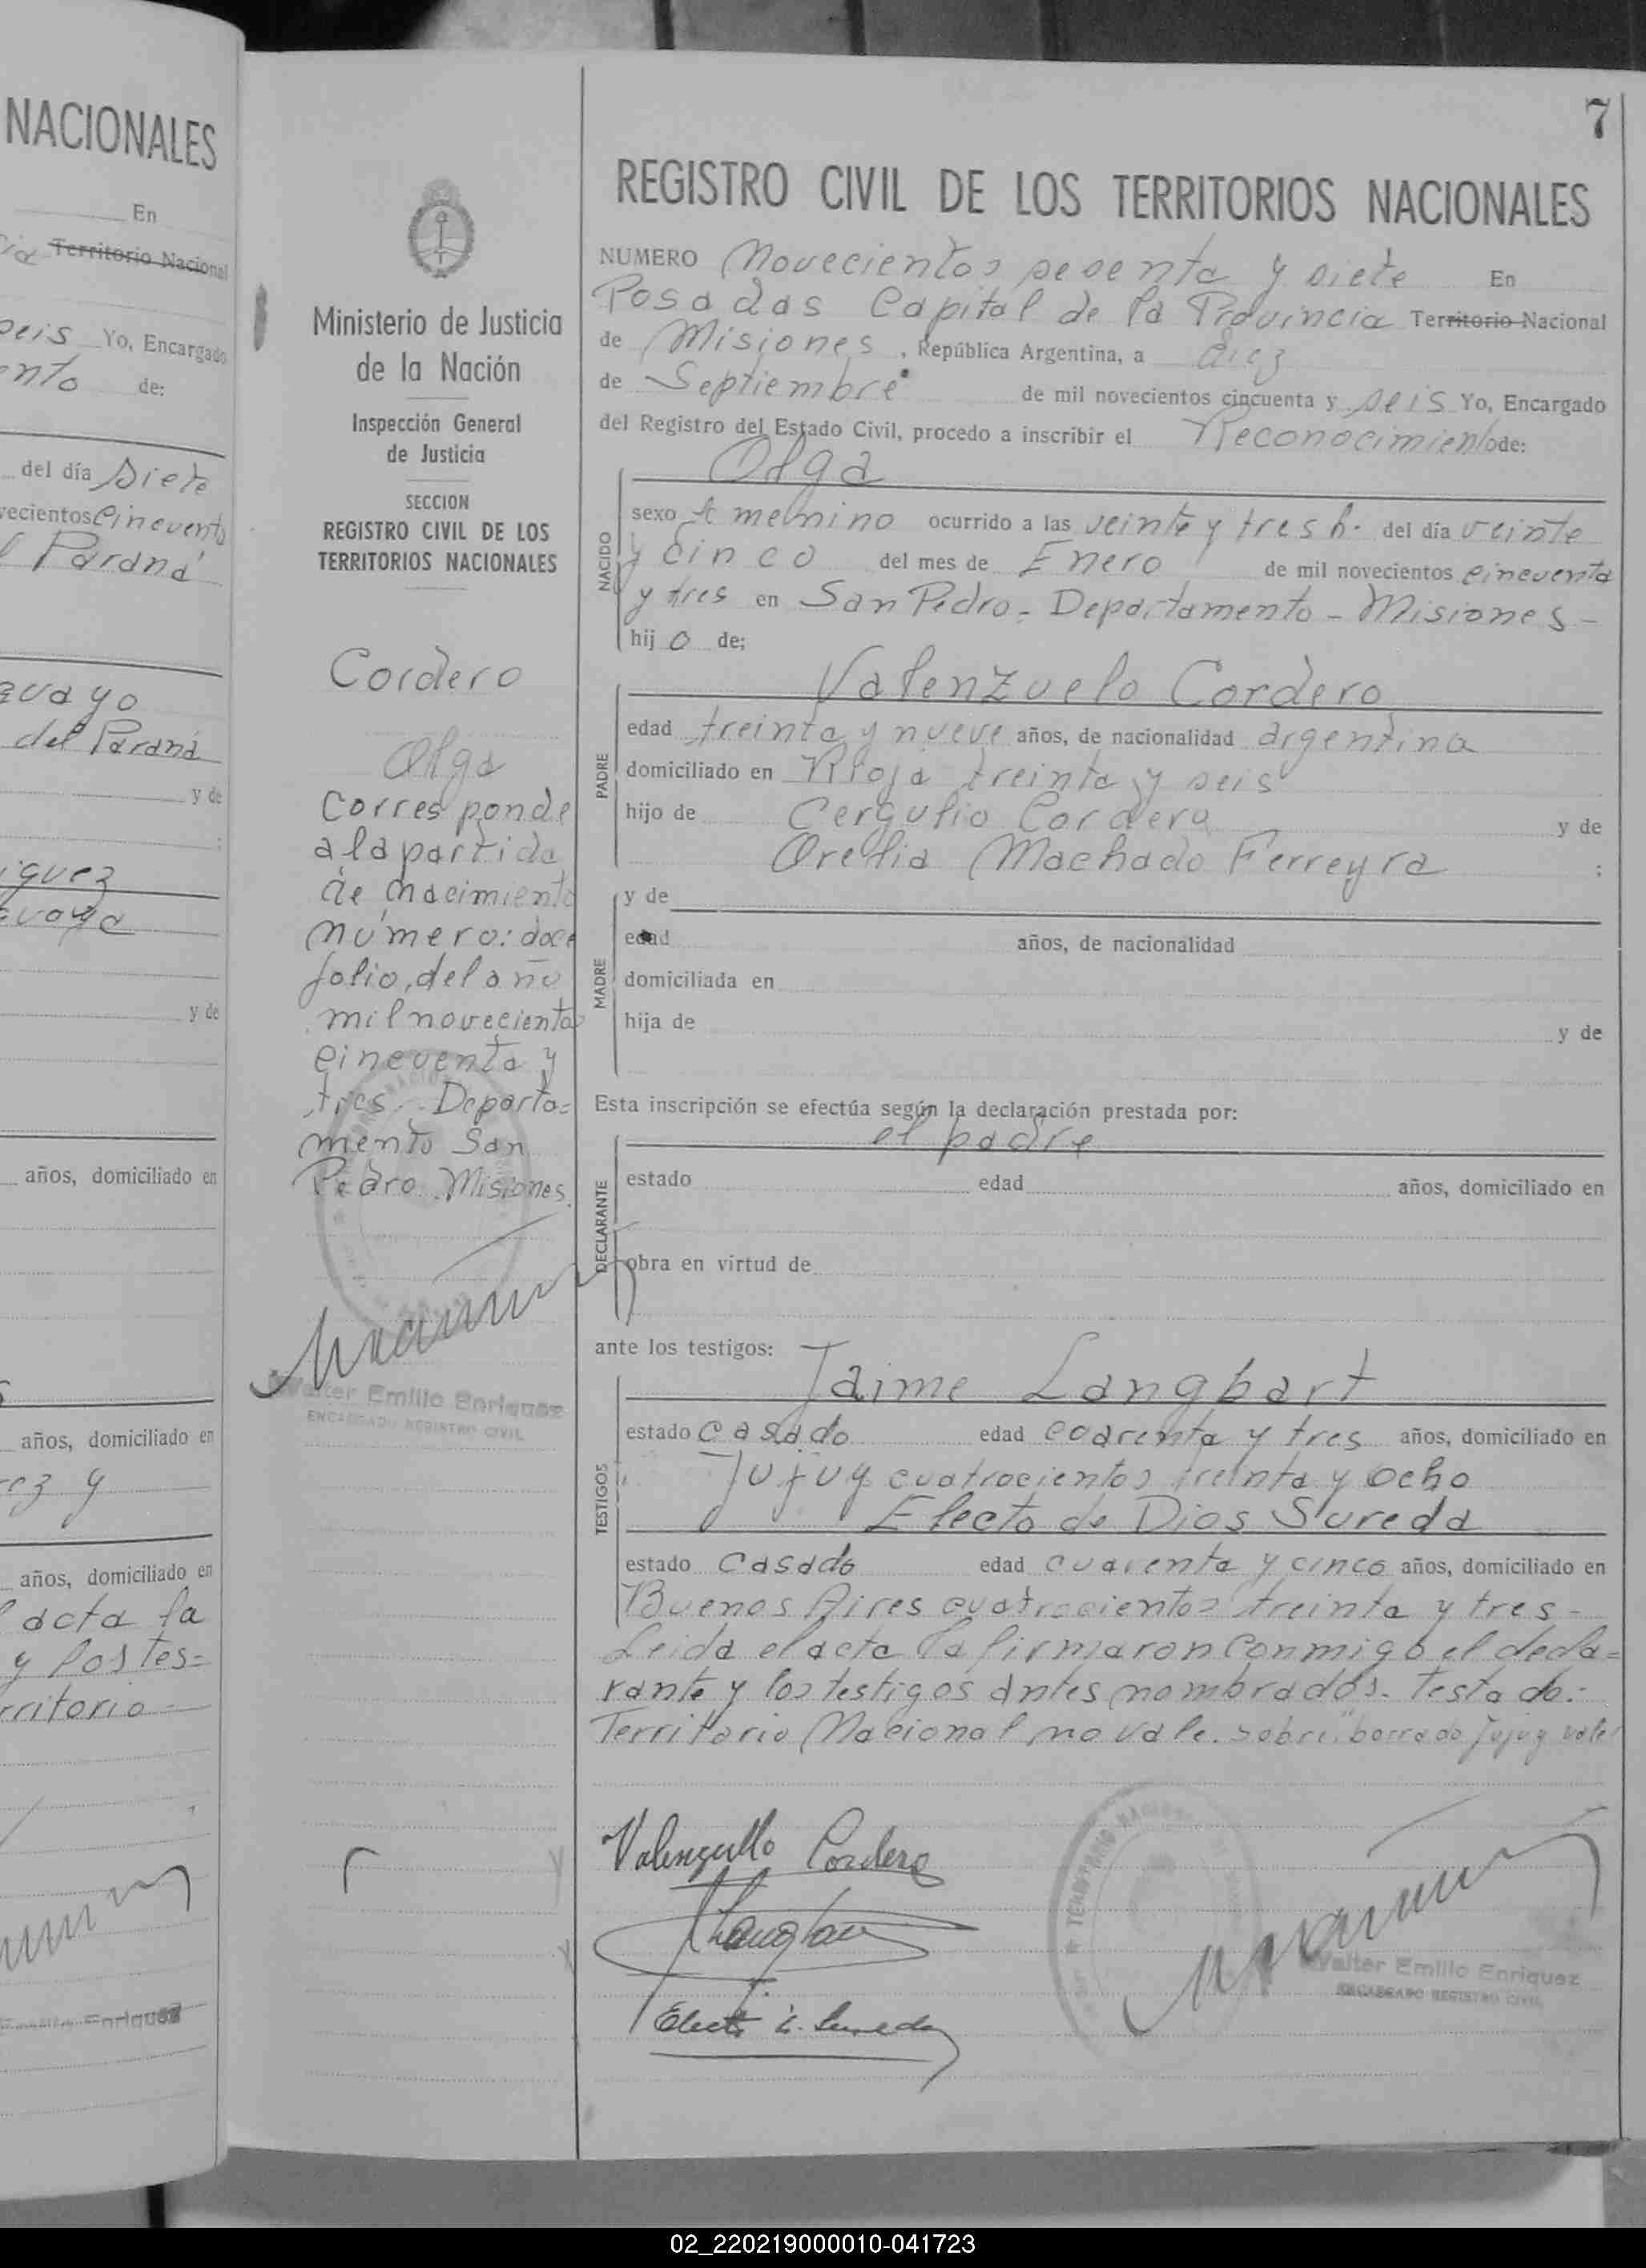 NACIONALES
En
Territorio Nacional
seis Yo, Encargado
de:
del día Siete
vecientos cincuenta
l Paraná
guayo
del Paraná
y de
iguez
guaya
y de
años, domiciliado en
años, domiciliado en
ez y
años, domiciliado en
acta la
y los tes=
rritorio
Enriquez
Ministerio de Justicia
de la Nación
Inspección General
de Justicia
SECCION
REGISTRO CIVIL DE LOS
TERRITORIOS NACIONALES
Cordero
Olga
Corresponde
a la partida
de nacimiento
número: doce
folio, del año
mil novecientos
cincuenta y
tres. Departa=
mento San
Pedro. Misiones.
Walter Emilio Enriquez
ENCARGADO REGISTRO CIVIL
7
REGISTRO CIVIL DE LOS TERRITORIOS NACIONALES
NUMERO Novecientos sesenta y siete En
Posadas Capital de la Provincia Territorio Nacional
de Misiones, República Argentina, a diez
de Septiembre de mil novecientos cincuenta y seis Yo, Encargado
del Registro del Estado Civil, procedo a inscribir el Reconocimiento de:
Olga
NACIDO
sexo femenino ocurrido a las veinte y tres h. del día veinte
y cinco del mes de Enero de mil novecientos cincuenta
y tres en San Pedro - Departamento - Misiones -
hijo de;
PADRE
Valenzuelo Cordero
edad treinta y nueve años, de nacionalidad argentina
domiciliado en Rioja treinta y seis
hijo de Cergulio Cordero y de
Orelia Machado Ferreyra ;
MADRE
y de
edad años, de nacionalidad
domiciliada en
hija de y de
Esta inscripción se efectúa según la declaración prestada por:
el padre
DECLARANTE
estado edad años, domiciliado en
obra en virtud de
ante los testigos:
TESTIGOS
Jaime Langbart
estado casado edad cuarenta y tres años, domiciliado en
Jujuy cuatrocientos treinta y ocho
Electo de Dios Sureda
estado casado edad cuarenta y cinco años, domiciliado en
Buenos Aires cuatrocientos treinta y tres -
Leida el acta la firmaron conmigo el decla=
rante y los testigos antes nombrados. Testado:-
Territorio Nacional no vale. Sobre "borrado Jujuy vale
Valenzuelo Cordero
Walter Emilio Enriquez
ENCARGADO REGISTRO CIVIL
02_220219000010-041723